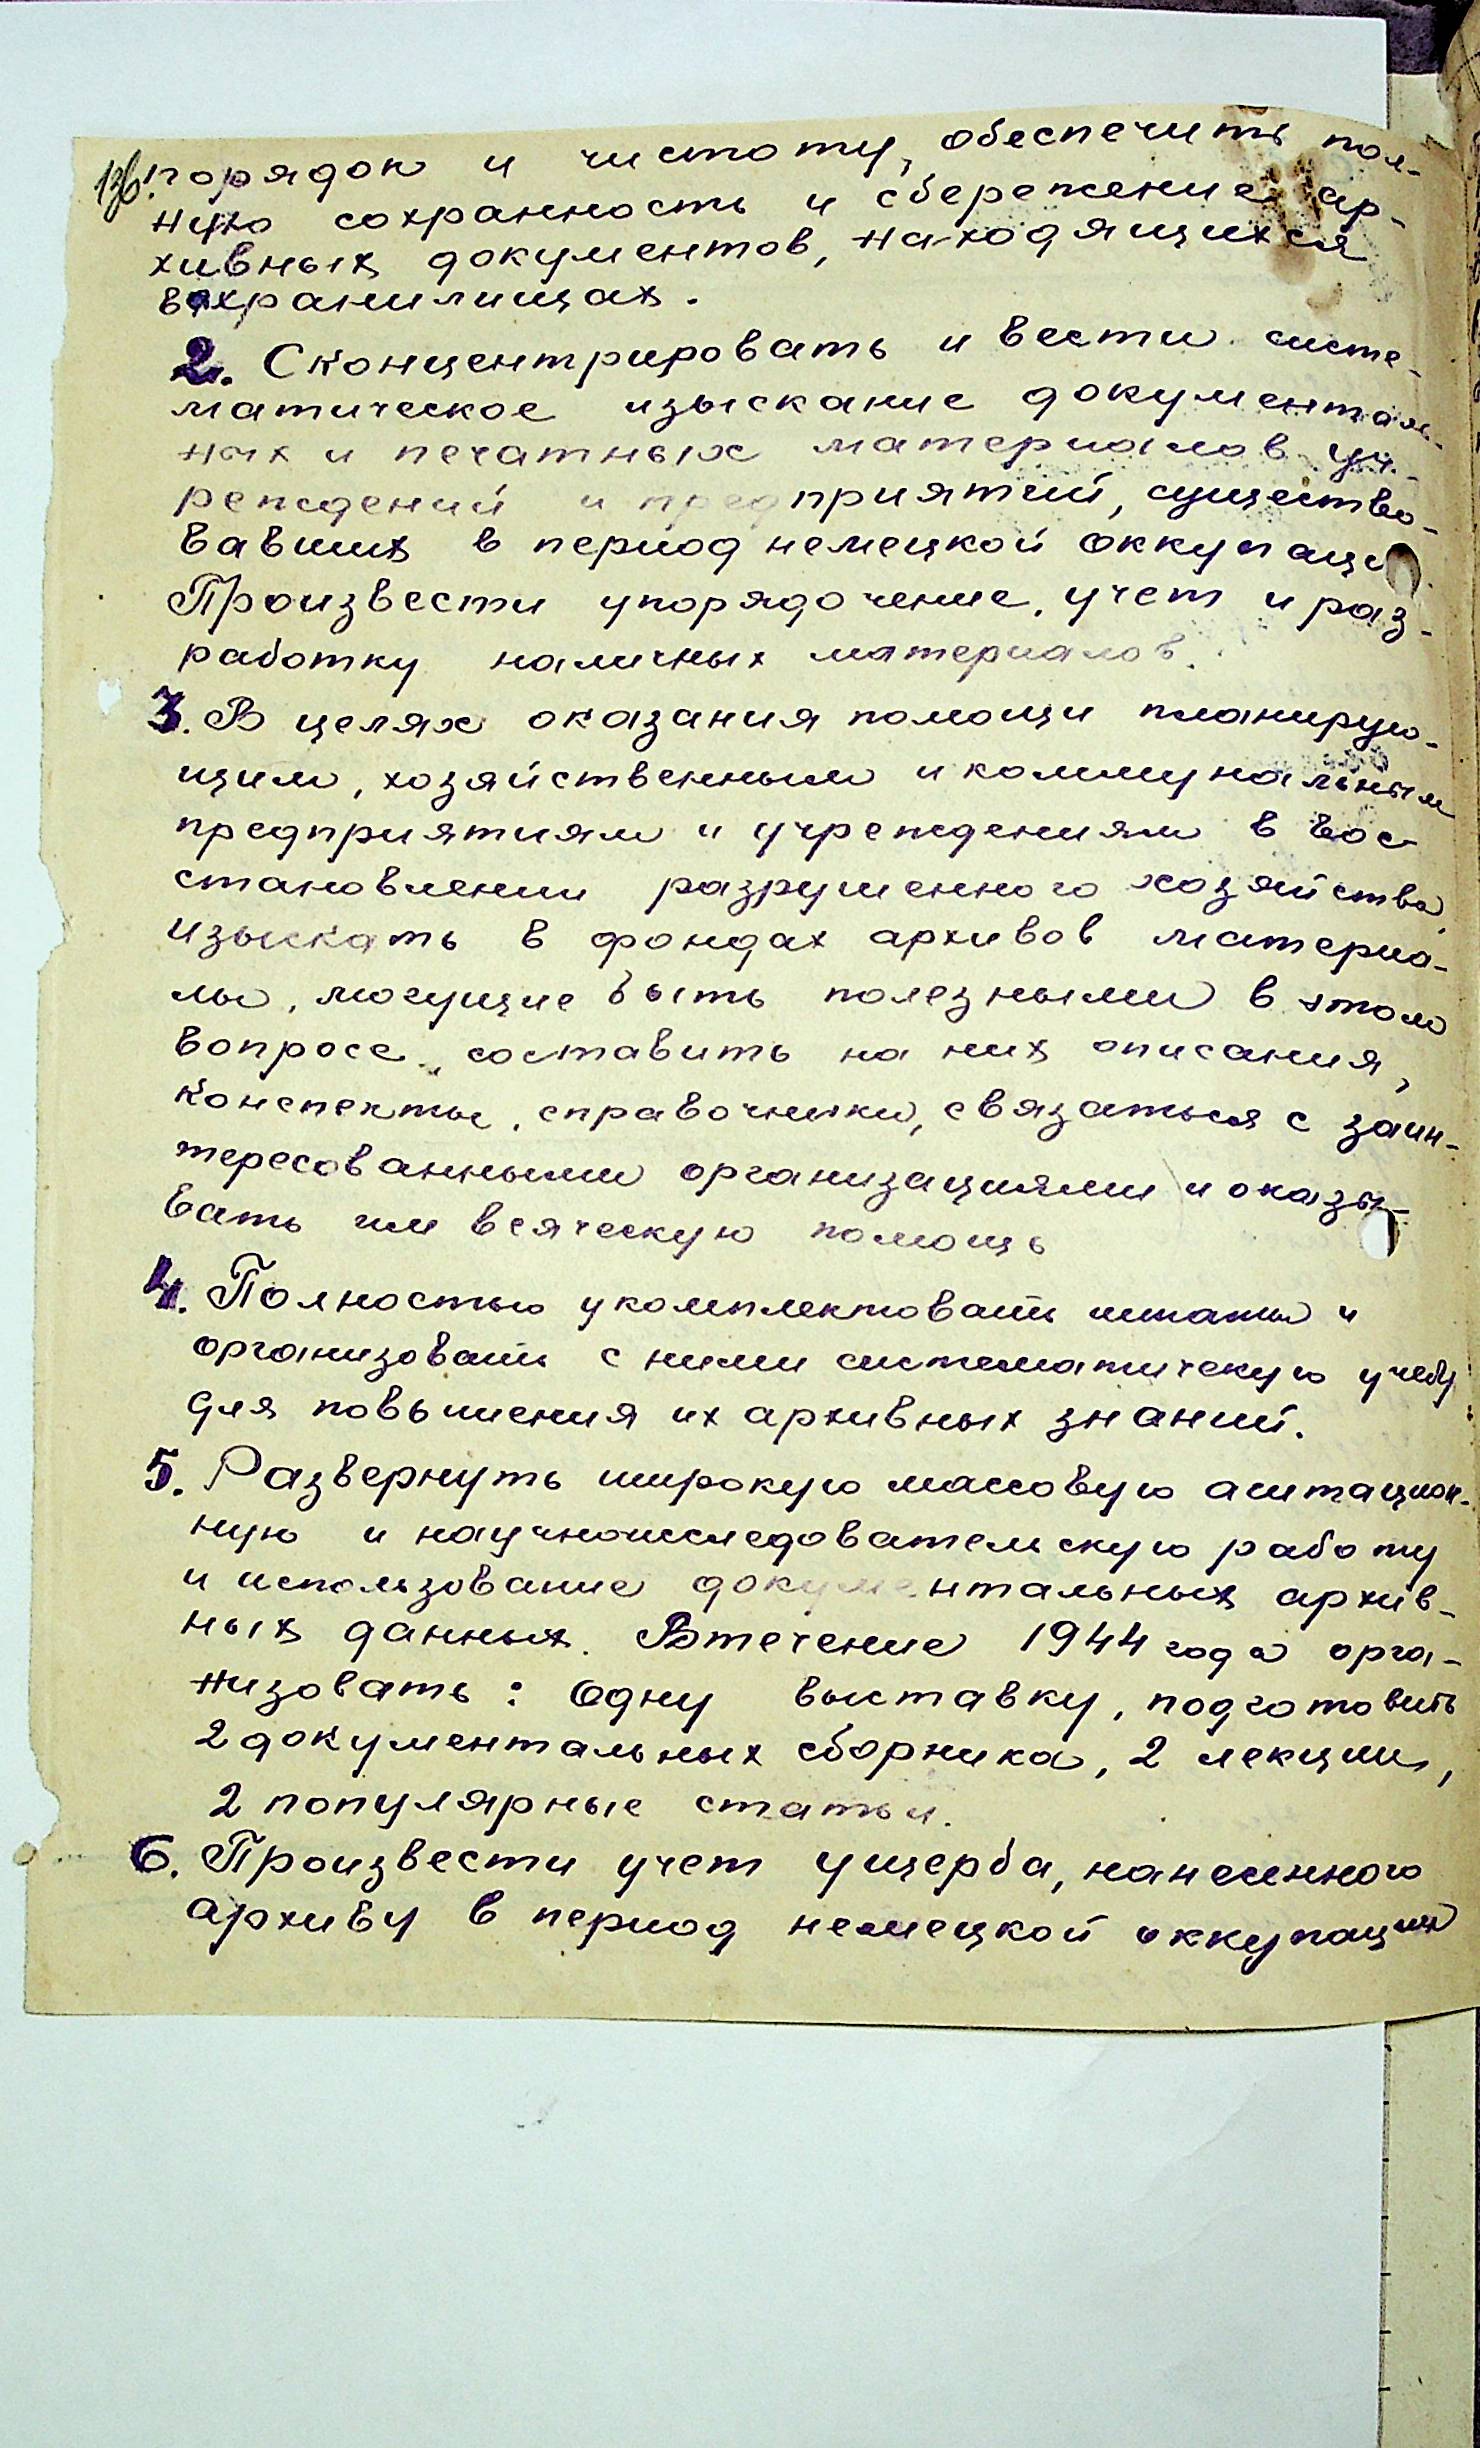 136. порядок и чистоту, обеспечить пол-
ную сохранность и сбережение ар-
хивных документов, находящихся
в хранилищах.
2. Сконцентрировать и вести систе-
матическое изыскание документаль-
ных и печатных материалов уч-
реждений и предприятий, существо-
вавших в период немецкой оккупаци
Произвести упорядочение, учет и раз-
работку наличных материалов.
3. В целях оказания помощи планирую-
щим, хозяйственным и коммунальным
предприятиям и учреждениям в вос-
становлении разрушенного хозяйства,
изыскать в фондах архивов материа-
лы, могущие быть полезными в этом
вопросе, составить на них описания,
конспекты, справочники, связаться с заин-
тересованными организациями и оказы-
вать им всяческую помощь
4. Полностью укомплектовать штаты и
организовать с ними систематическую учебу
для повышения их архивных знаний.
5. Развернуть широкую массовую агитацион-
ную и научноисследовательскую работу
и использование документальных архив-
ных данных. Втечение 1944 года орга-
низовать: одну выставку, подготовить
2 документальных сборника, 2 лекции,
2 популярные статьи.
6. Произвести учет ущерба, нанесенного
архиву в период немецкой оккупации